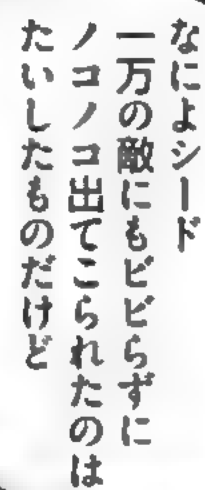 なによシード
一万の敵にもビビらずに
ノコノコ出てこられたのは
たいしたものだけど